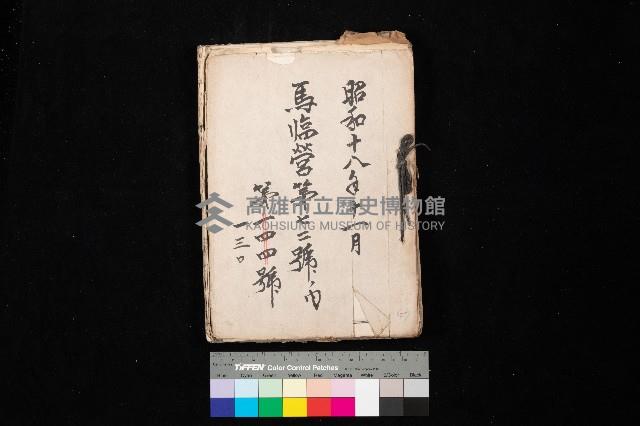 昭和十八年十一月
馬臨營第七二號ノ内
第一四四號
一三〇
高雄市立歷史博物館
KAOHSIUNG MUSEUM OF HISTORY
TIFFEN Color Control Patches
Blue Cyan Green Yellow Red Magenta White 3/Color Black